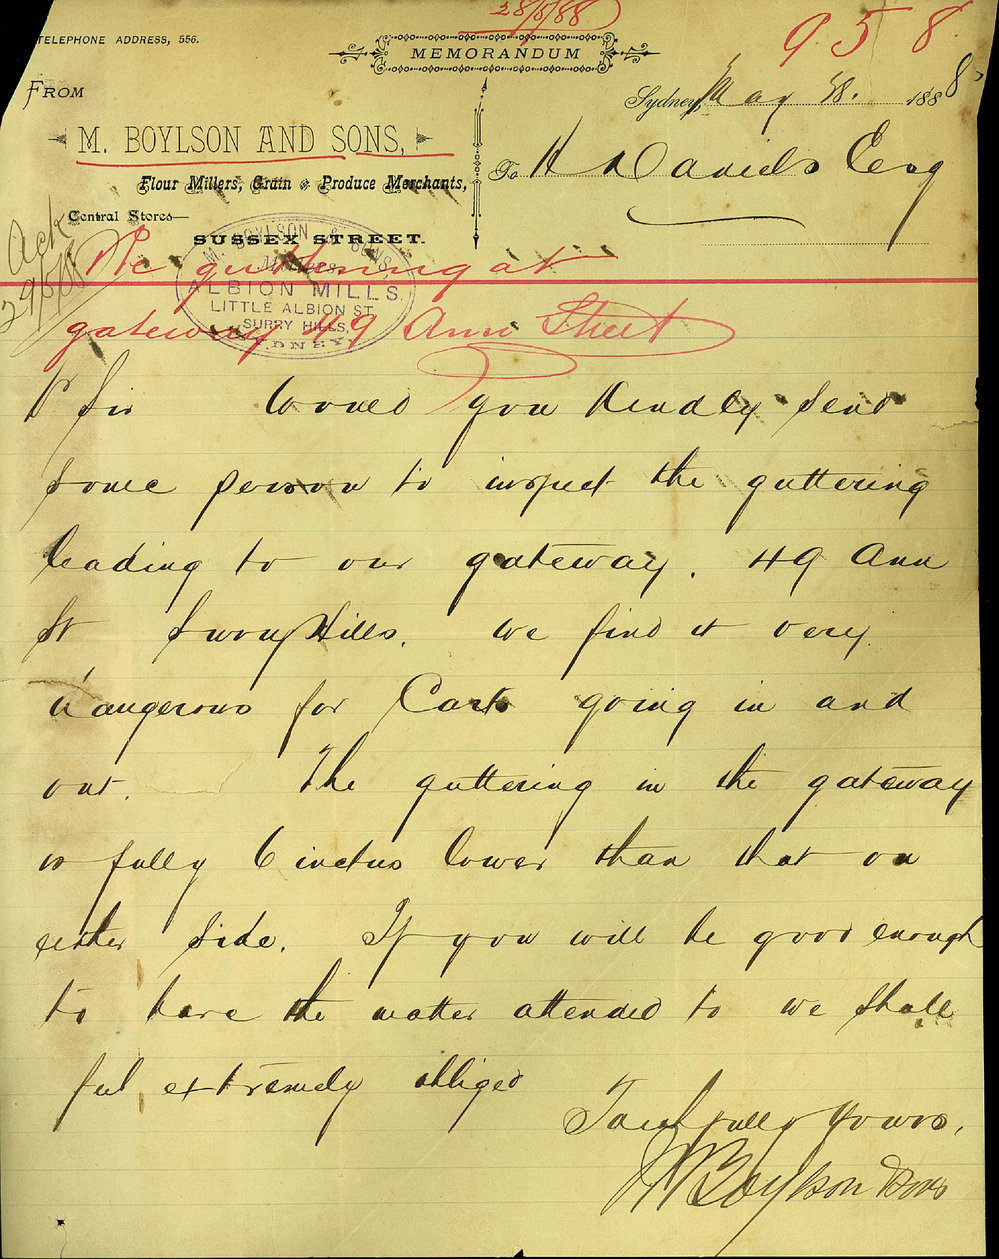 28/5/88
958
TELEPHONE ADDRESS, 556.
MEMORANDUM
FROM
Sydney, May 28. 1888
M. BOYLSON AND SONS,
To H Daniels Esq
Flour Millers, Grain & Produce Merchants,
Central Stores—
SUSSEX STREET.
Ack
29/5/88
M. BOYLSON & SONS,
Millers
ALBION MILLS,
LITTLE ALBION ST
SURRY HILLS,
SYDNEY
Re guttering at
gateway 49 Ann Street
D Sir Would you Kindly send
some person to inspect the guttering
leading to our gateway. 49 Ann
St Surry Hills. We find it very
dangerous for Carts going in and
out. The guttering in the gateway
is fully 6 inches lower than that on
either side. If you will be good enough
to have the matter attended to we shall
feel extremely obliged
Faithfully Yours,
M Boylson & Sons